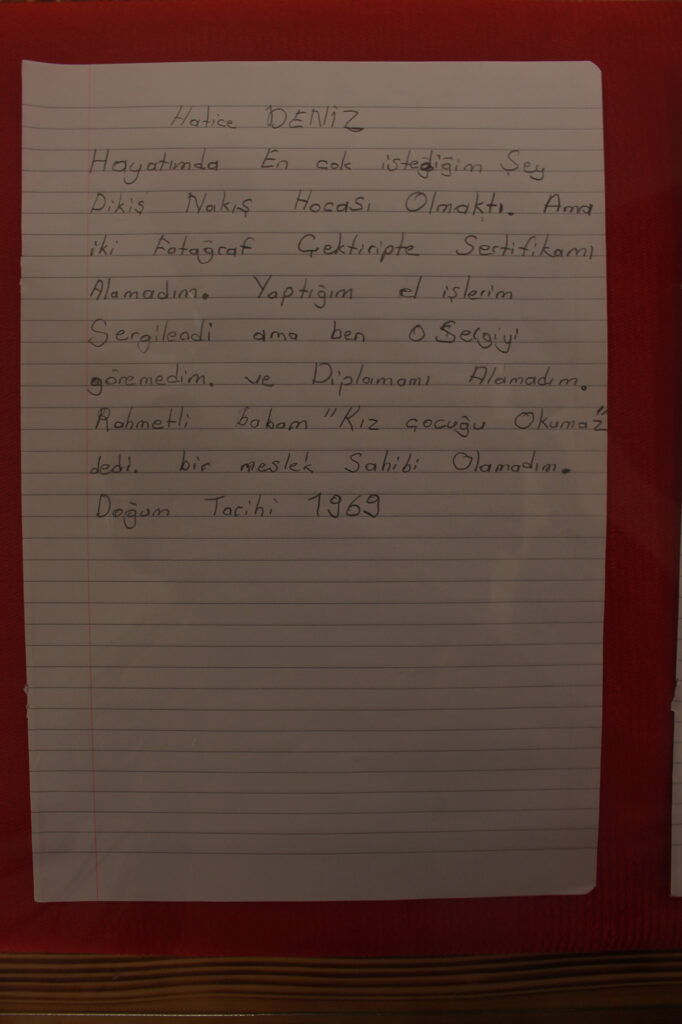 Hatice DENİZ
Hayatımda En çok istediğim Şey
Dikiş Nakış Hocası Olmaktı. Ama
iki Fotağraf Çektiripte Sertifikamı
Alamadım. Yaptığım el işlerim
Sergilendi ama ben O Sergiyi
göremedim. ve Diplamamı Alamadım.
Rahmetli babam "Kız çocuğu Okumaz"
dedi. bir meslek Sahibi Olamadım.
Doğum Tarihi 1969